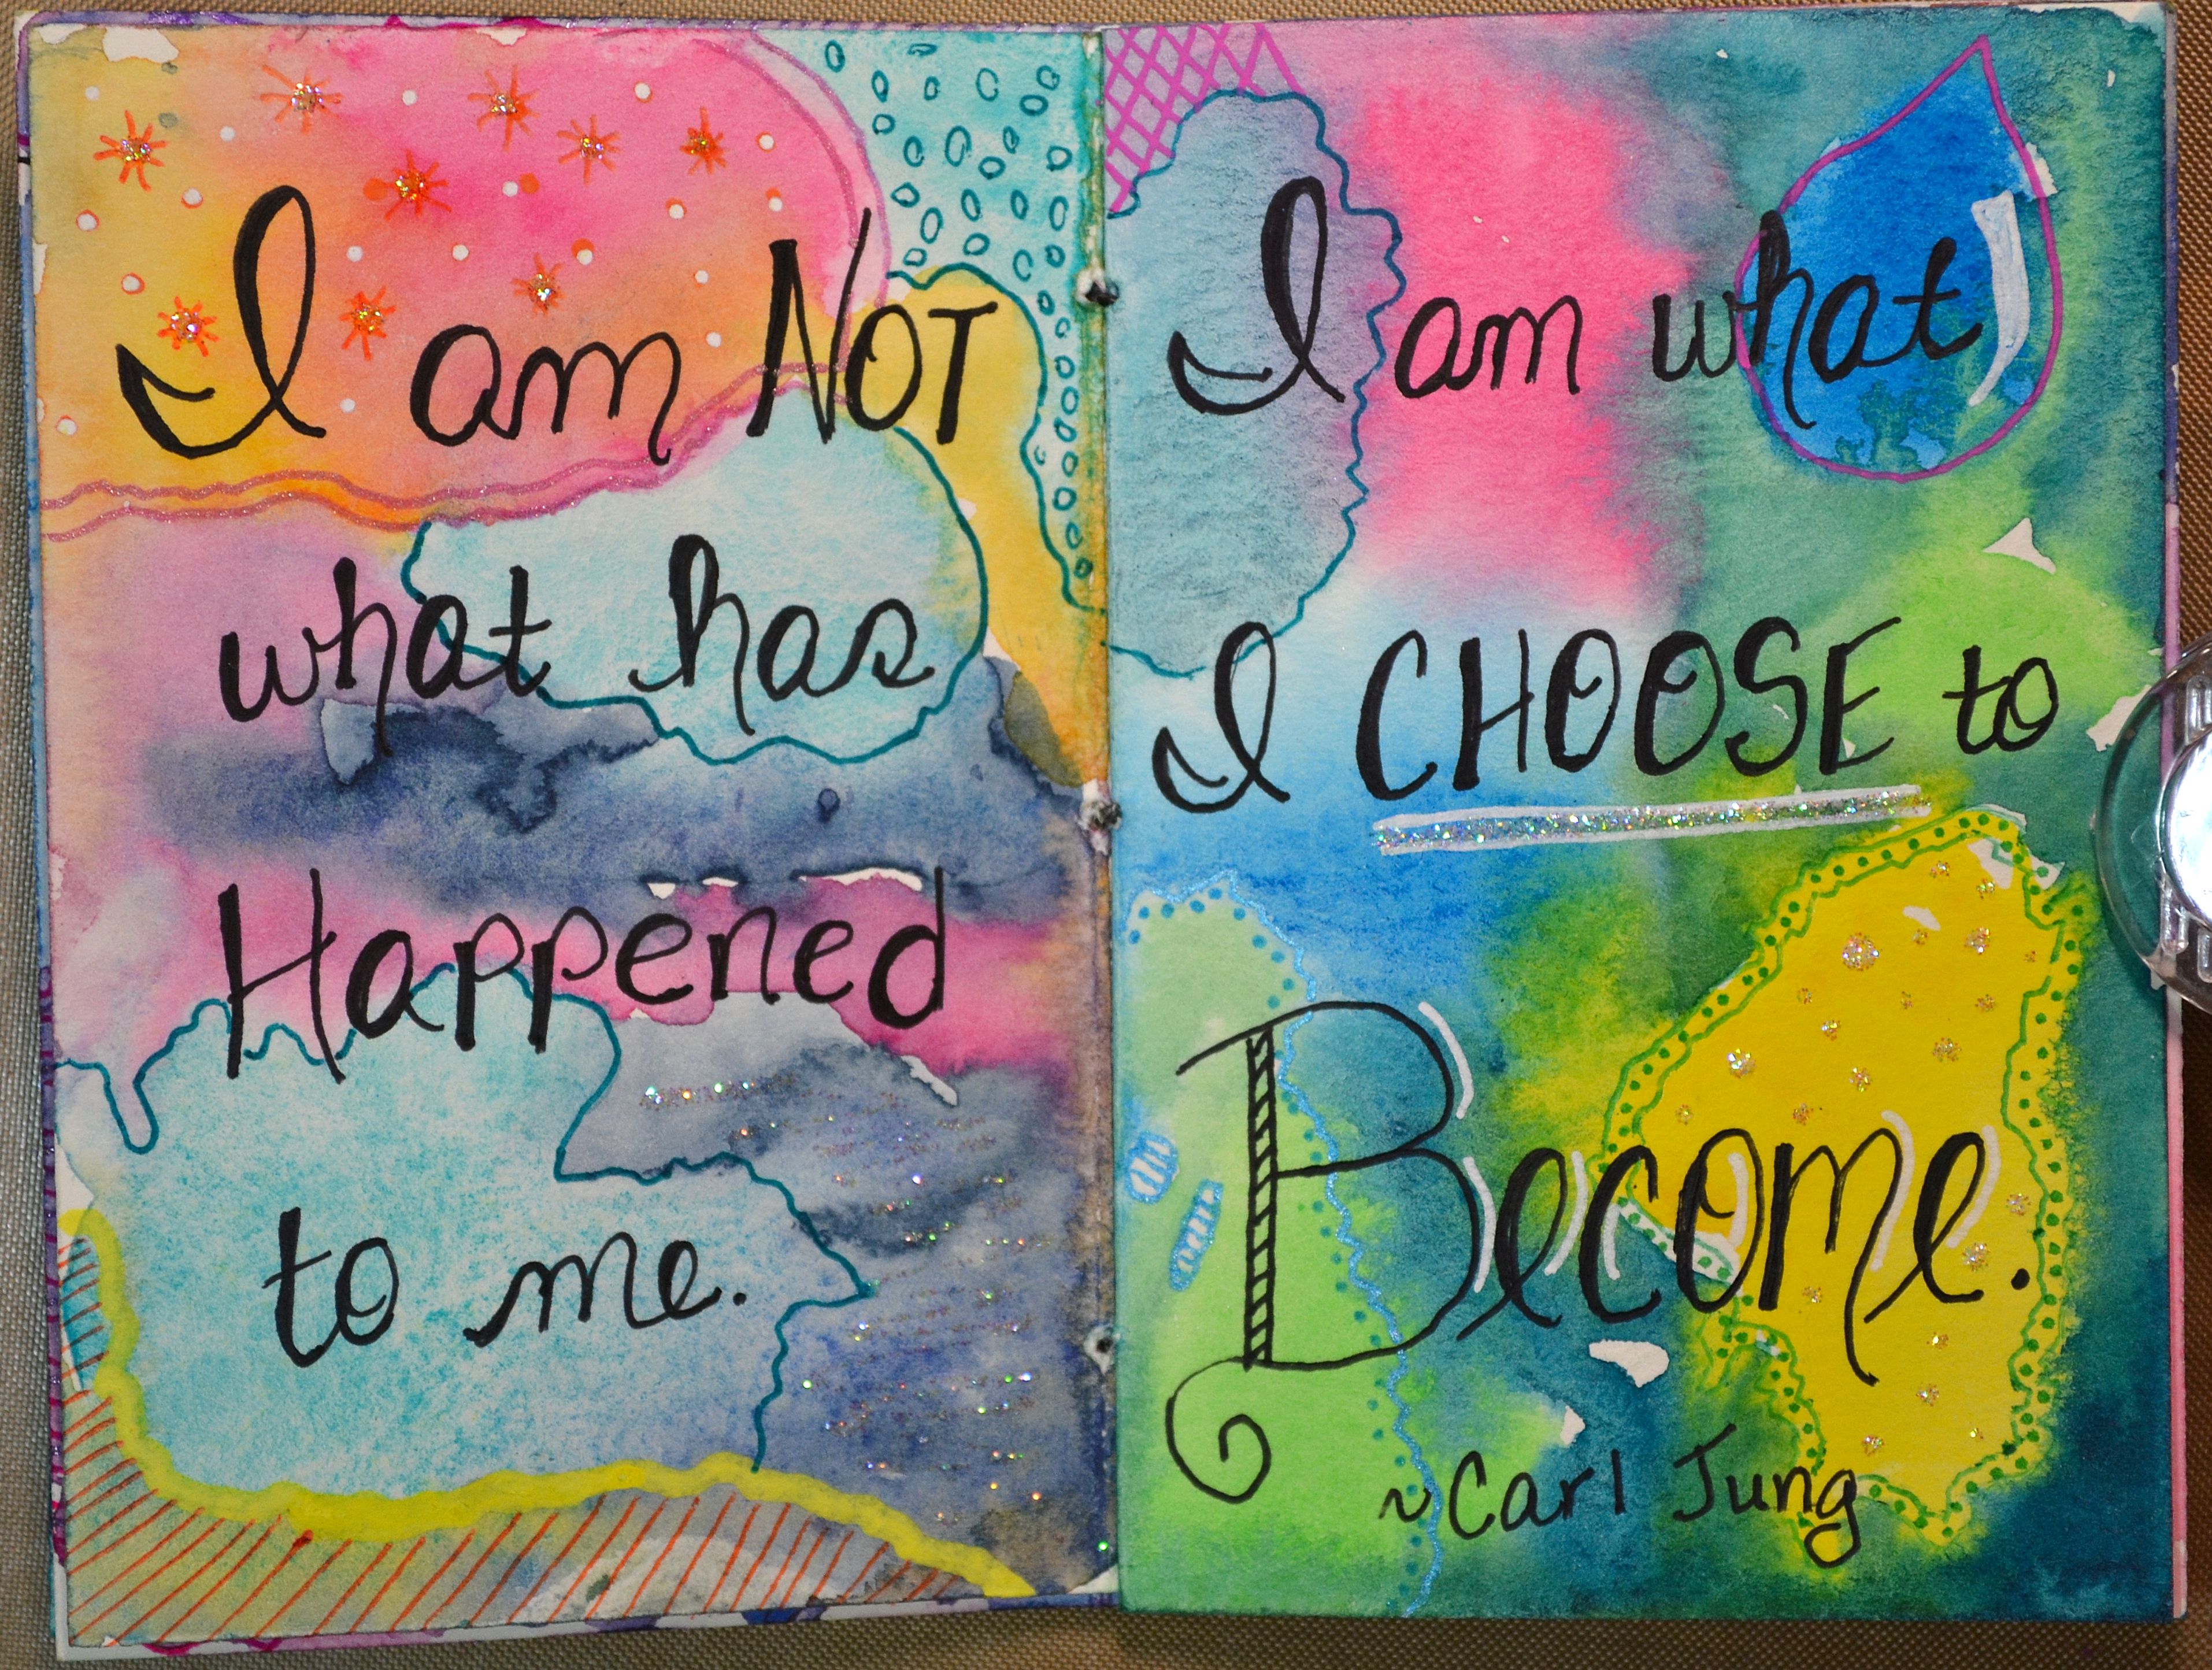 I am NOT
what has
Happened
to me.
I am what
I CHOOSE to
Become.
~Carl Jung